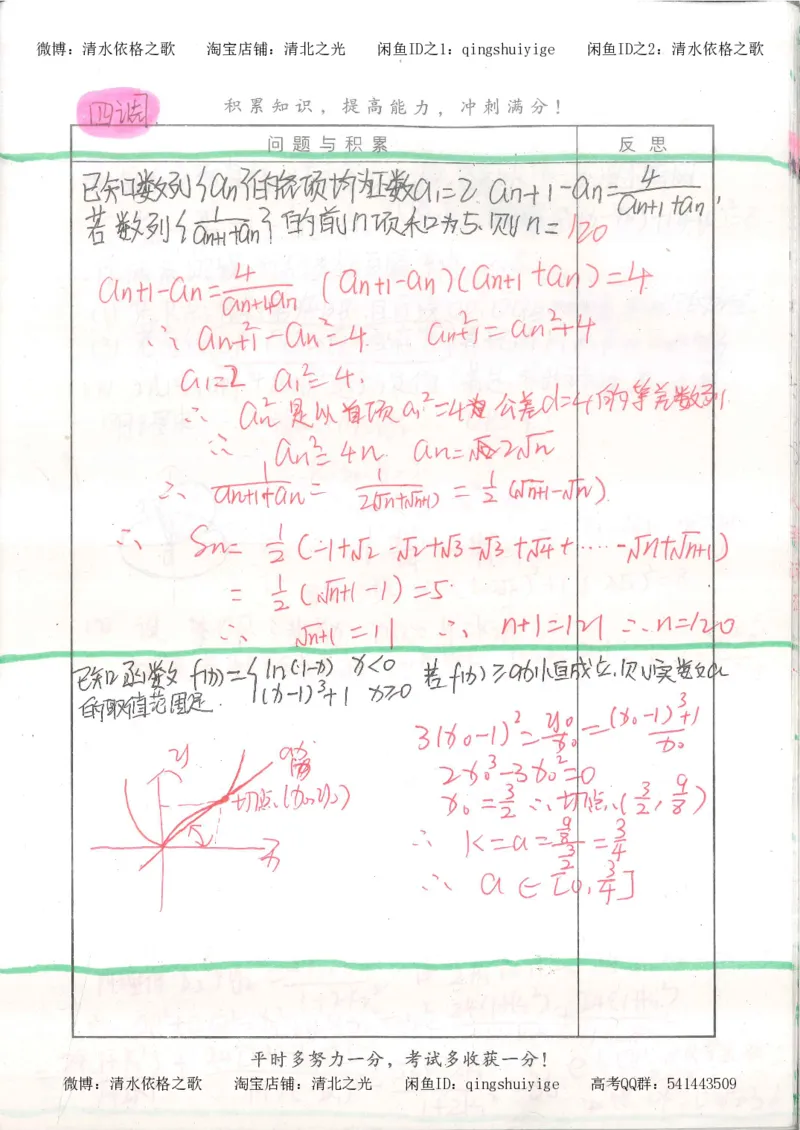 微博：清水依格之歌 淘宝店铺：清北之光 闲鱼ID之1：qingshuiyige 闲鱼ID之2：清水依格之歌
四调
积累知识，提高能力，冲刺满分！
问题与积累 反思
已知数列{an}的各项均为正数a₁=2 an+1-an=4/(an+1+an),
若数列{1/(an+1+an)}的前n项和为5.则n=120
an+1-an=4/(an+1+an) (an+1-an)(an+1+an)=4
∴ an+1²-an²=4 an+1²=an²+4
a₁=2 a₁²=4,
∴ an²是以首项a₁²=4为公差d=4的等差数列.
∴ an²=4n an=2√n
∴ 1/(an+1+an)=1/(2(√n+√n+1))=1/2(√n+1-√n)
∴ Sn=1/2(-1+√2-√2+√3-√3+√4+……-√n+√n+1)
=1/2(√n+1-1)=5
∴ √n+1=11 ∴ n+1=121 ∴ n=120
已知函数f(x)={ln(1-x) x<0 若f(x)≥ax恒成立,则实数a
(x-1)³+1 x≥0
的取值范围是
3(x₀-1)²=y₀/x₀=((x₀-1)³+1)/x₀
y ax
2x₀³-3x₀²=0
切点(x₀,y₀)
x₀=3/2 ∴切点(3/2,9/8)
x
∴ K=a=(9/8)/(3/2)=3/4
∴ a∈[0,3/4]
平时多努力一分，考试多收获一分！
微博：清水依格之歌 淘宝店铺：清北之光 闲鱼ID：qingshuiyige 高考QQ群：541443509